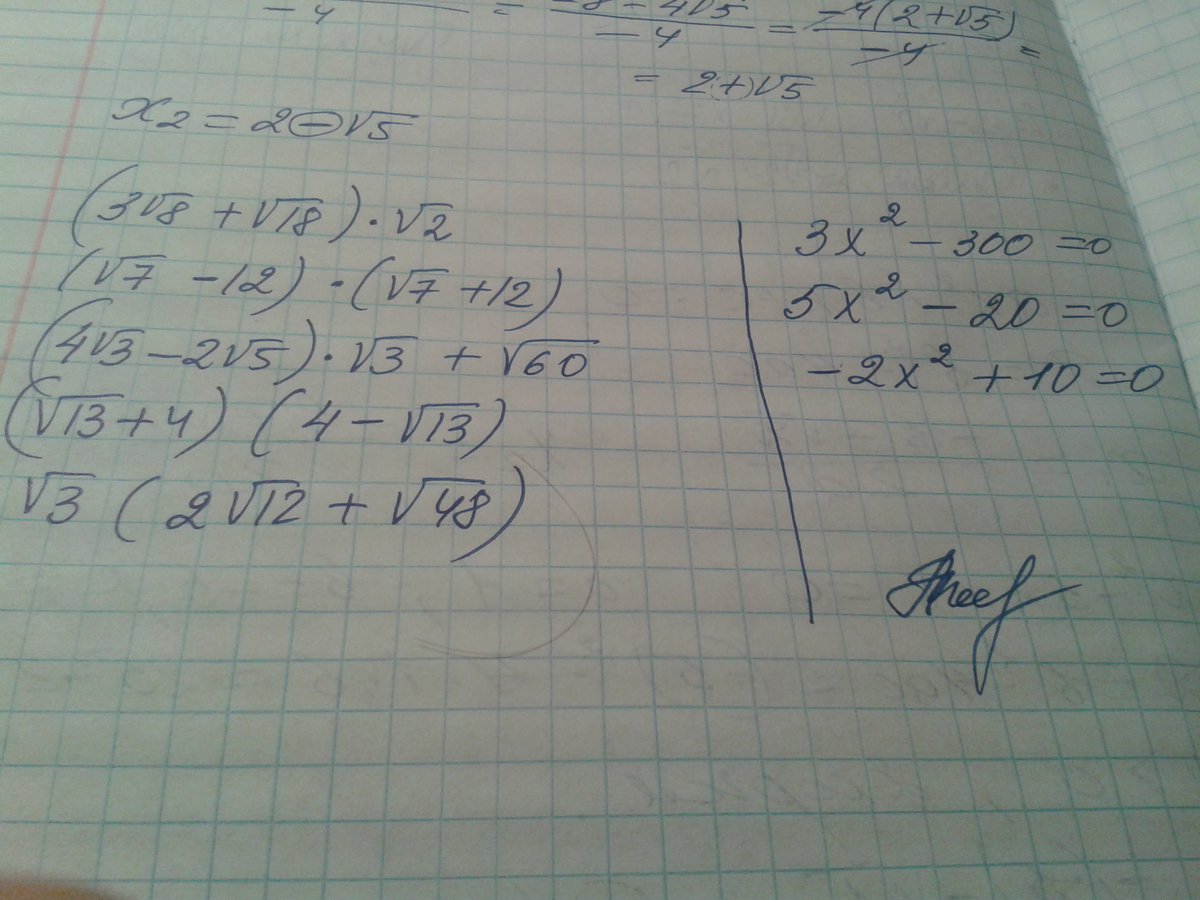 -4 = -8-4√5/-4 = -4(2+√5)/-4 =
= 2+√5
x₂ = 2-√5
(3√8 + √18)·√2
(√7 -12) ·(√7 +12)
(4√3-2√5)·√3 + √60
(√13+4) (4-√13)
√3 (2√12 + √48)
3x² - 300 =0
5x² - 20 =0
-2x² +10=0